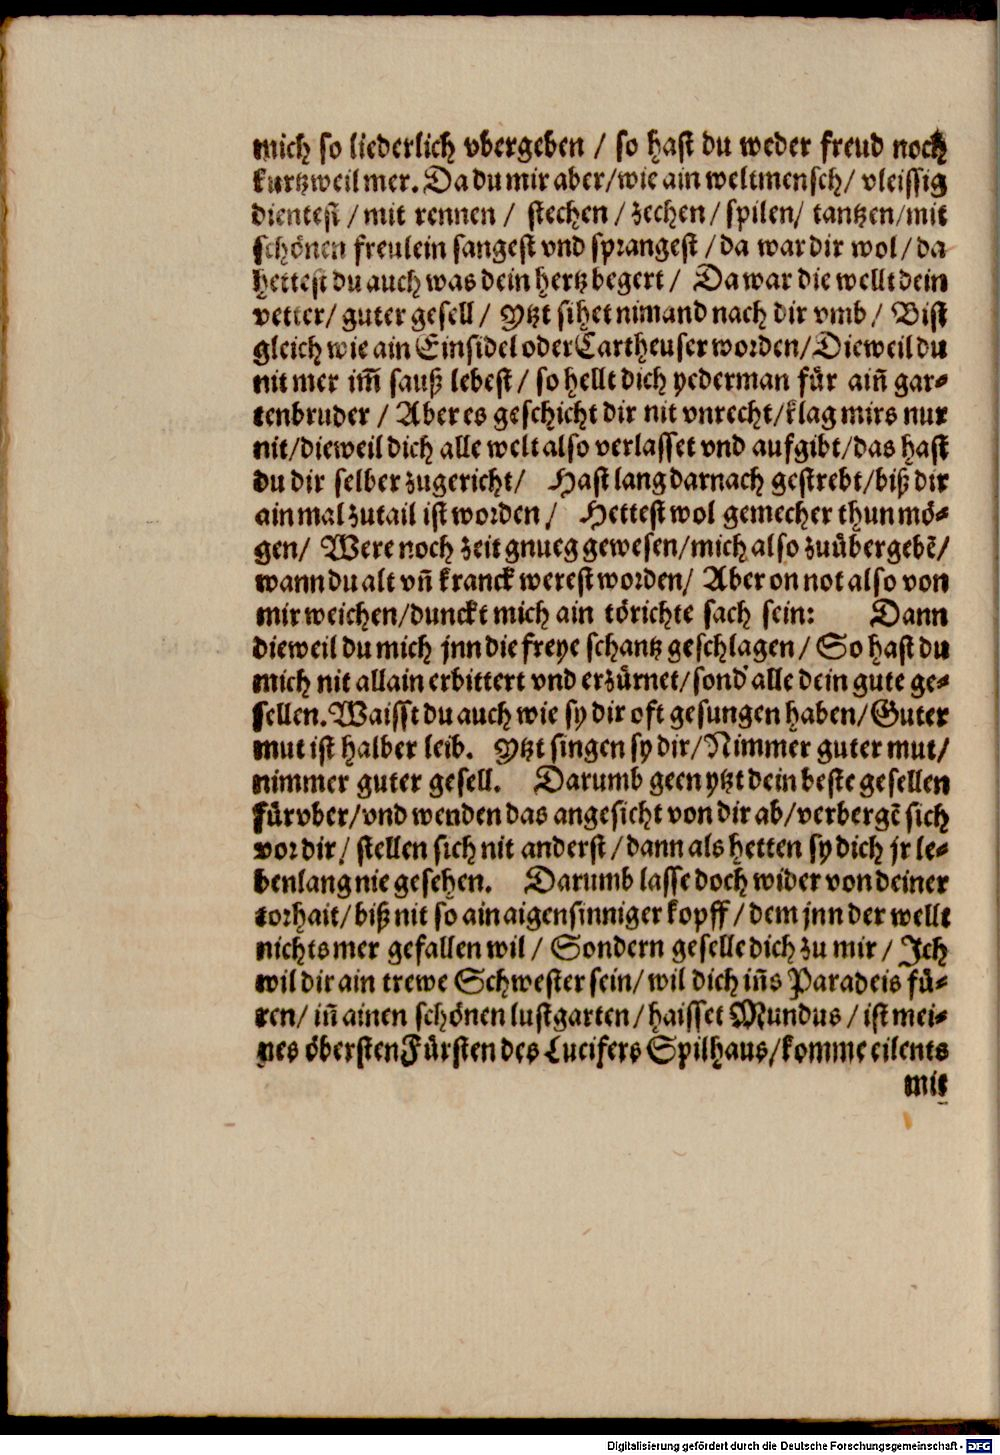 mich so liederlich vbergeben / so hast du weder freud noch
kurtzweil mer. Da du mir aber/wie ain weltmensch/ vleissig
dientest / mit rennen / stechen / zechen / spilen/ tantzen/mit
schönen freulein sangest vnd sprangest / da war dir wol/ da
hettest du auch was dein hertz begert / Da war die wellt dein
vetter/ guter gesell / Ytzt sihet nimand nach dir vmb / Bist
gleich wie ain Einsidel oder Cartheuser worden/ Dieweil du
nit mer im̃ sauß lebest / so hellt dich yederman für ain̄ gar⸗
tenbruder / Aber es geschicht dir nit vnrecht/klag mirs nur
nit/dieweil dich alle welt also verlasset vnd aufgibt/das hast
du dir selber zugericht/ Hast lang darnach gestrebt/biß dir
ain mal zutail ist worden / Hettest wol gemecher thun mö⸗
gen/ Were noch zeit gnueg gewesen/mich also zuübergebẽ/
wann du alt vñ kranck werest worden/ Aber on not also von
mir weichen/dunckt mich ain törichte sach sein: Dann
dieweil du mich jnn die freye schantz geschlagen / So hast du
mich nit allain erbittert vnd erzürnet/sond' alle dein gute ge⸗
sellen. Waisst du auch wie sy dir oft gesungen haben/Guter
mut ist halber leib. Ytzt singen sy dir/Nimmer guter mut/
nimmer guter gesell. Darumb geen ytzt dein beste gesellen
fürvber/vnd wenden das angesicht von dir ab/verbergẽ sich
vor dir/ stellen sich nit anderst / dann als hetten sy dich jr le⸗
benlang nie gesehen. Darumb lasse doch wider von deiner
torhait/ biß nit so ain aigensinniger kopff / dem jnn der wellt
nichts mer gefallen wil / Sondern geselle dich zu mir / Ich
wil dir ain trewe Schwester sein/ wil dich iñs Paradeis fü⸗
ren/ iñ ainen schönen lustgarten/ haisset Mundus / ist mei⸗
nes öbersten Fürsten des Lucifers Spilhaus/komme eilents
mit
Digitalisierung gefördert durch die Deutsche Forschungsgemeinschaft - DFG